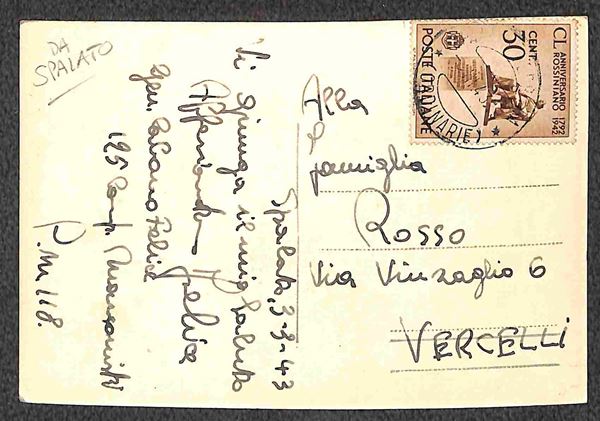 DA
SPALATO
Spalato, 3-3-43
Vi giunga il mio saluto
Felice
Felice
125 Comp.
P.M 118.
CL ANNIVERSARIO
ROSSINIANO
1792
1942
CENT.
30
POSTE ITALIANE
Alla
famiglia
ROSSO
Via Vinzaglio 6
VERCELLI